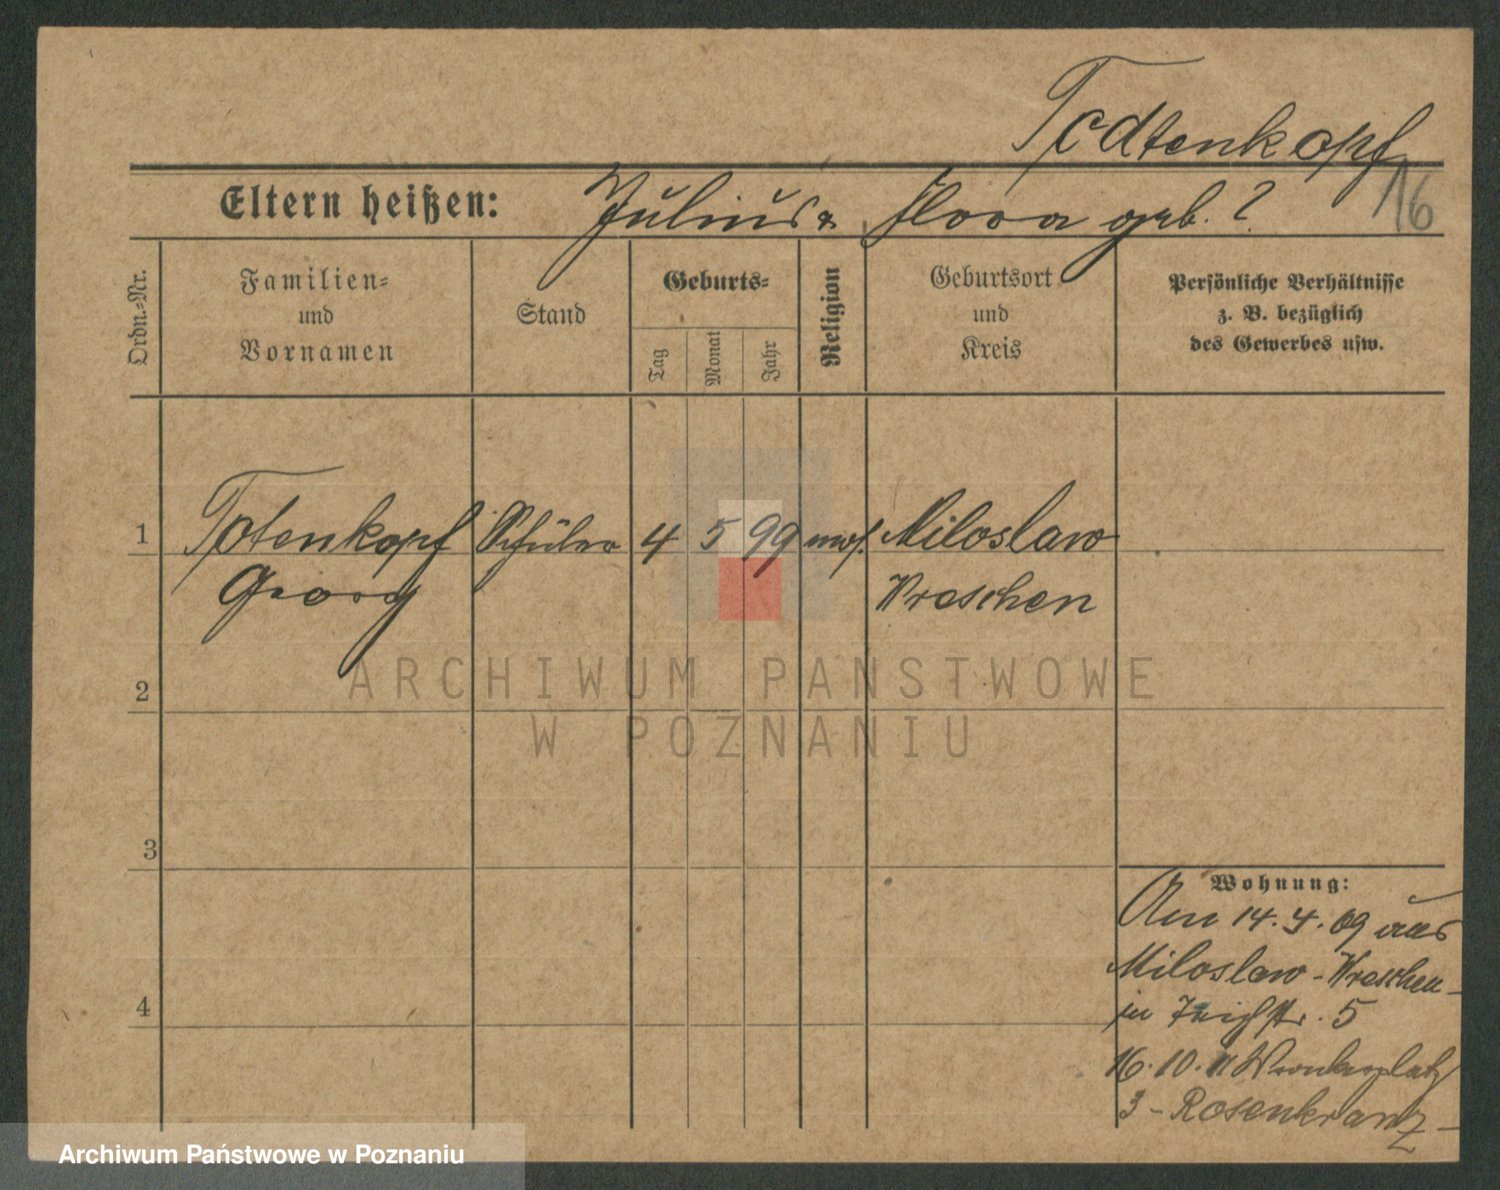 Todtenkopf
Eltern heißen: Julius & Flora geb. ?
16
Ordn.-Nr.
Familien-
und
Vornamen
Stand
Geburts-
Tag
Monat
Jahr
Religion
Geburtsort
und
Kreis
Persönliche Verhältnisse
z. B. bezüglich
des Gewerbes usw.
1 Totenkopf Schüler 4 5 99 mos. Miloslaw
Georg Wreschen
2
3
4
Wohnung:
Am 14. 4. 09 aus
Miloslaw - Wreschen -
in Teichstr. 5
16. 10. 11 Wronkerplatz
3 - Rosenkranz -
ARCHIWUM PAŃSTWOWE
W POZNANIU
Archiwum Państwowe w Poznaniu